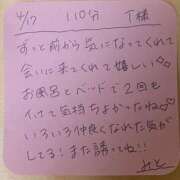 4/17 110分 T様
ずっと前から気になってくれて
会いに来てくれて嬉しい♡
お風呂とベッドで2回も
イけて気持ちよかったね♡
いろいろ仲良くなれた気が
してる!また誘ってね!!
みと